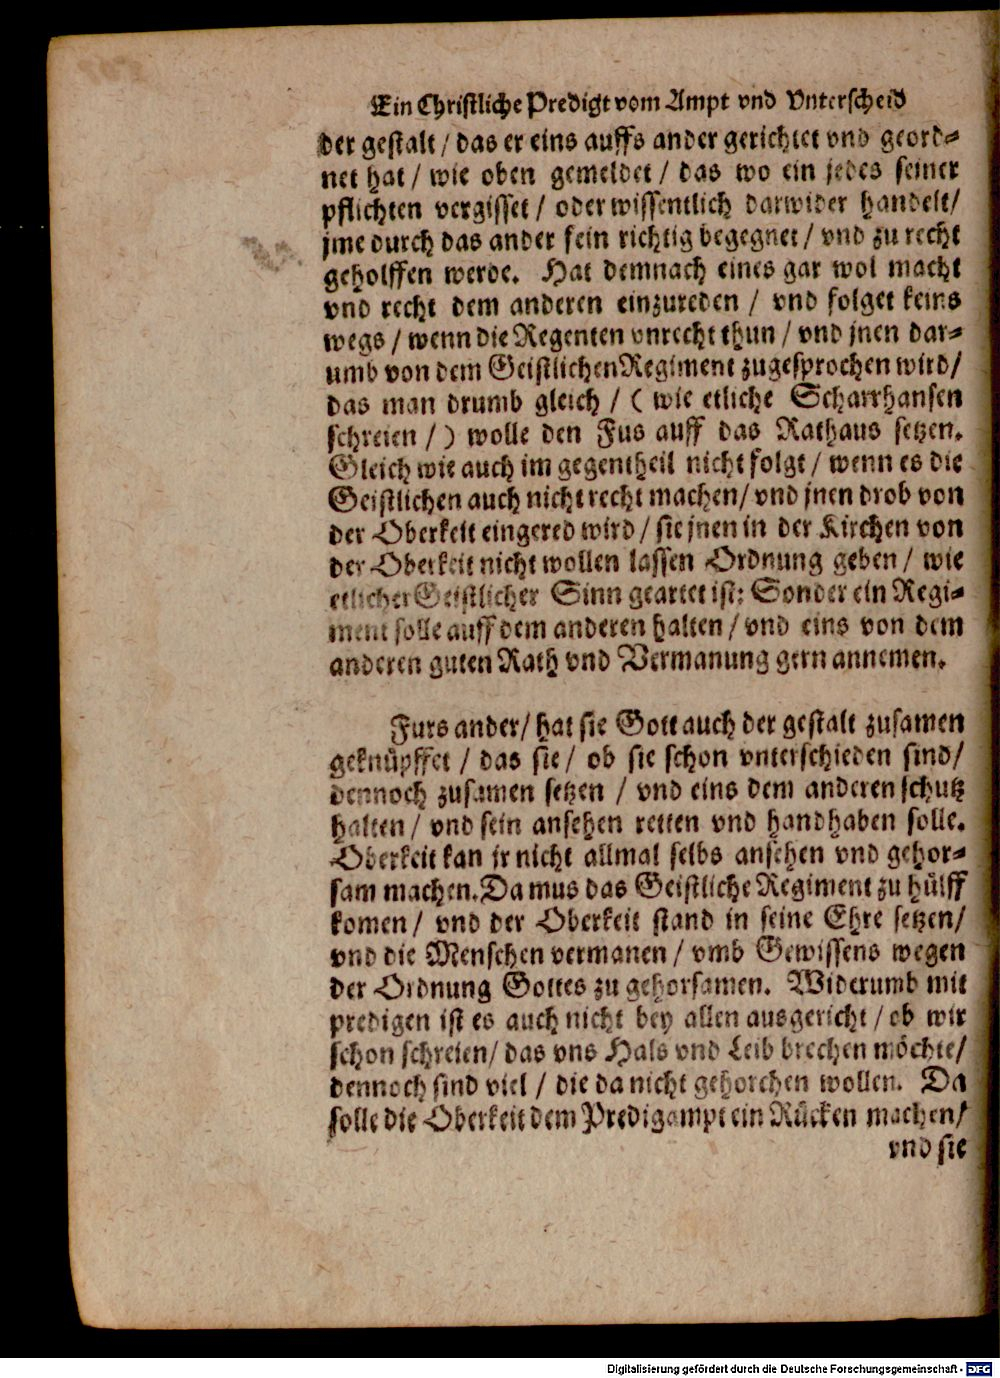 Ein Christliche Predigt vom Ampt vnd Vnterscheid
der gestalt / das er eins auffs ander gerichtet vnd geord-
net hat / wie oben gemeldet / das wo ein jedes seiner
pflichten vergisset / oder wissentlich darwider handelt/
jme durch das ander fein richtig begegnet / vnd zu recht
geholffen werde. Hat demnach eines gar wol macht
vnd recht dem anderen einzureden / vnd folget keins
wegs / wenn die Regenten vnrecht thun / vnd jnen dar-
umb von dem Geistlichen Regiment zugesprochen wird/
das man drumb gleich / ( wie etliche Scharrhansen
schreien / ) wolle den Fus auff das Rathaus setzen.
Gleich wie auch im gegentheil nicht folgt / wenn es die
Geistlichen auch nicht recht machen/ vnd jnen drob von
der Oberkeit eingered wird / sie jnen in der Kirchen von
der Oberkeit nicht wollen lassen Ordnung geben / wie
etlicher Geistlicher Sinn geartet ist: Sonder ein Regi-
ment solle auff dem anderen halten / vnd eins von dem
anderen guten Rath vnd Vermanung gern annemen.
Furs ander/ hat sie Gott auch der gestalt zusamen
geknüpffet / das sie / ob sie schon vnterschieden sind/
dennoch zusamen setzen / vnd eins dem anderen schutz
halten / vnd sein ansehen retten vnd handhaben solle.
Oberkeit kan jr nicht allmal selbs ansehen vnd gehor-
sam machen. Da mus das Geistliche Regiment zu hülff
komen / vnd der Oberkeit stand in seine Ehre setzen/
vnd die Menschen vermanen / vmb Gewissens wegen
der Ordnung Gottes zu gehorsamen. Widerumb mit
predigen ist es auch nicht bey allen ausgericht / ob wir
schon schreien/ das vns Hals vnd Leib brechen möchte/
dennoch sind viel / die da nicht gehorchen wollen. Da
solle die Oberkeit dem Predigampt ein Rücken machen/
vnd sie
Digitalisierung gefördert durch die Deutsche Forschungsgemeinschaft - DFG